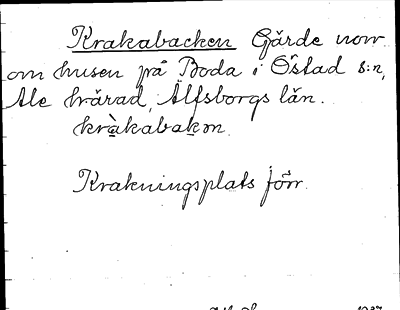 Krakabacken Gärde norr
om husen på Boda i Östad s:n,
Ale härad, Älfsborgs län.
kràkabakɒn
Krakningsplats förr.